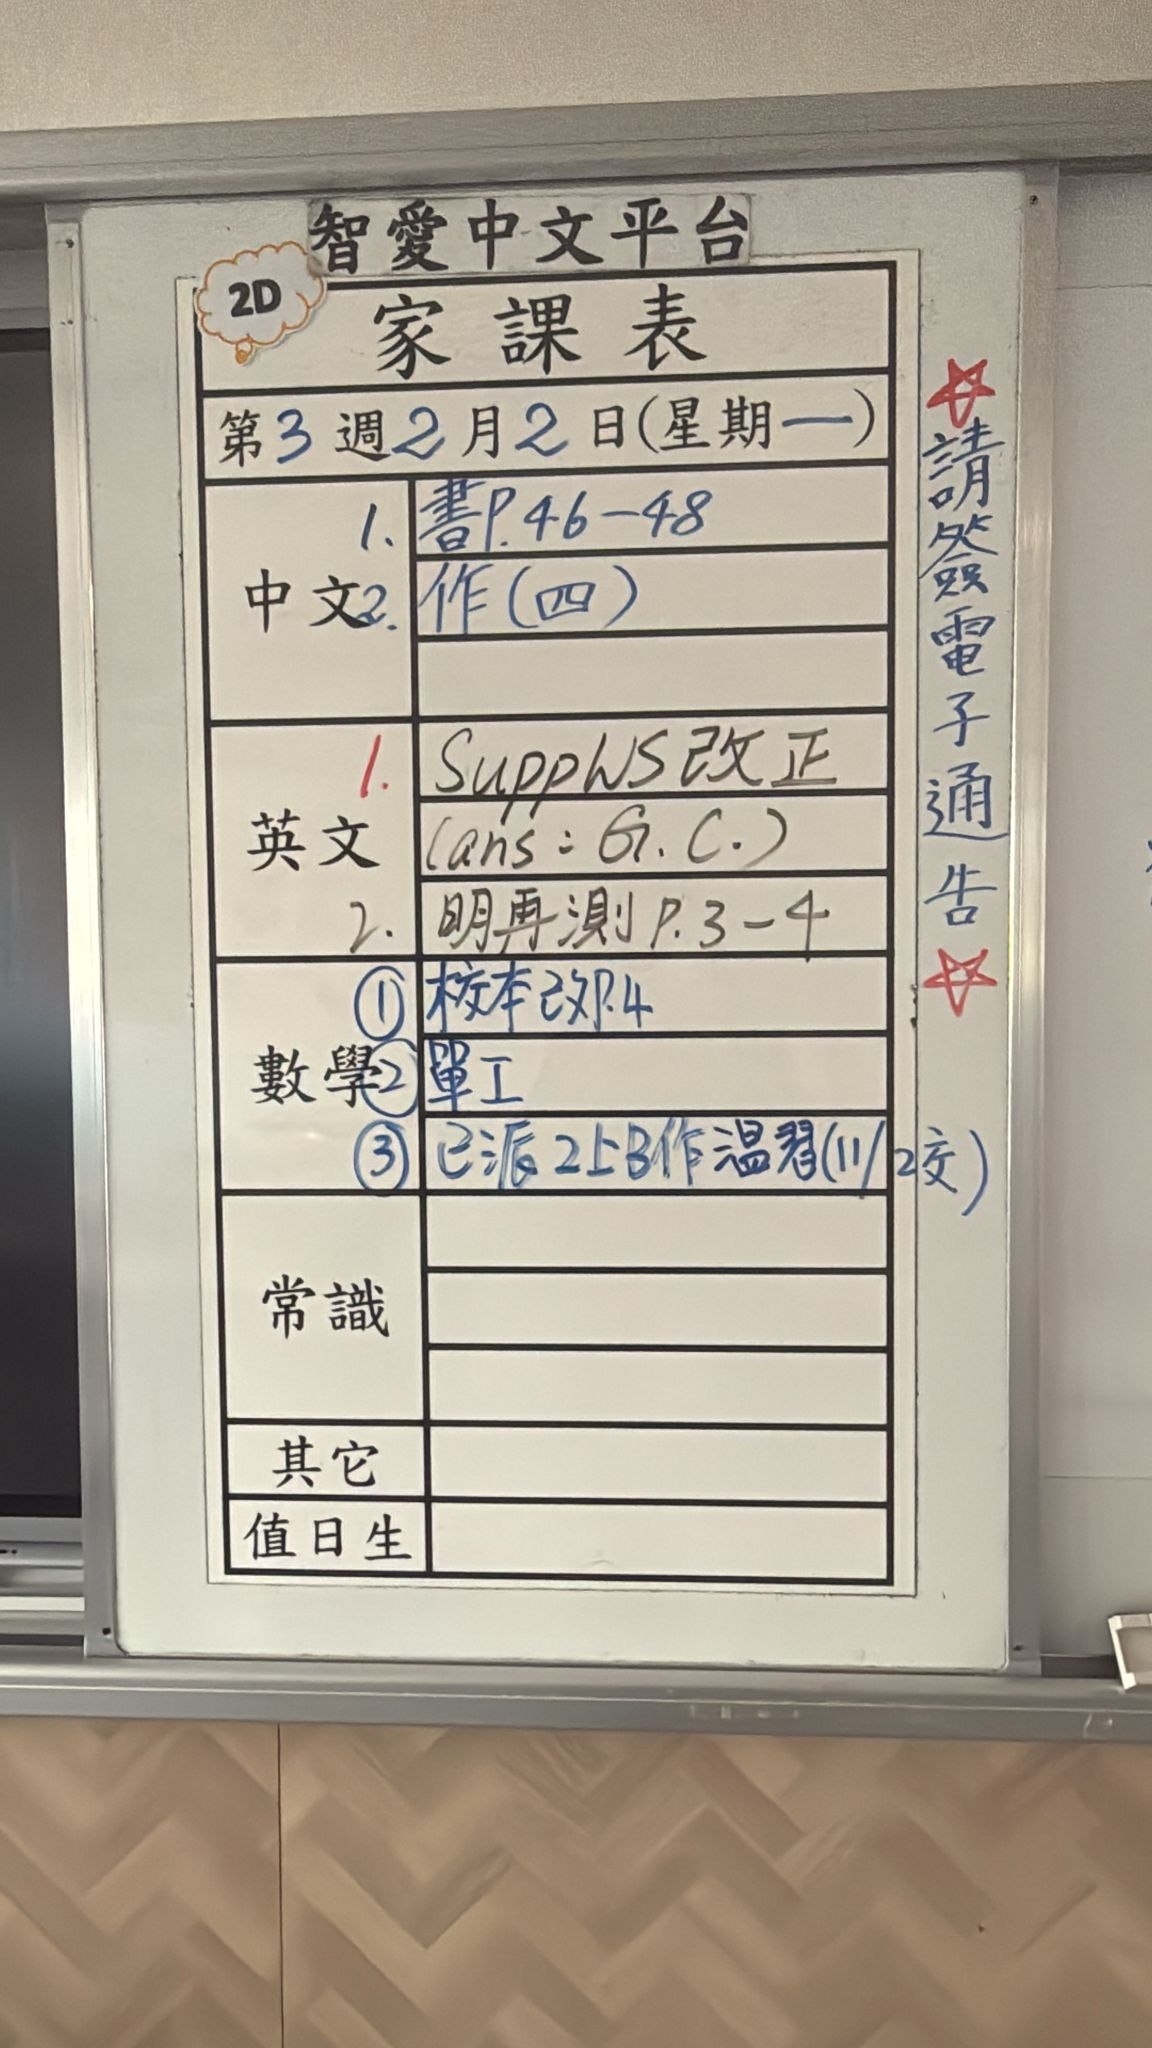 智愛中文平台
2D
家課表
第3週2月2日(星期一)
中文
1. 書P.46-48
2. 作(四)
英文
1. SuppWS改正
(ans: G.C.)
2. 明再測P.3-4
數學
① 校本改P.4
② 單工
③ 已派2上B作溫習(11/2交)
常識
其它
值日生
☆請簽電子通告☆